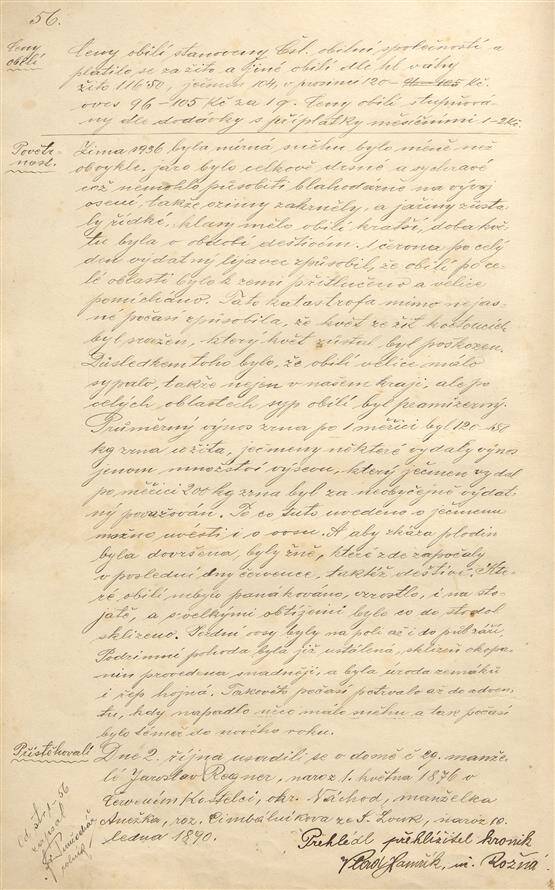 56.
Ceny
obilí
Ceny obilí stanoveny Čsl. obilní společností a
platilo se za žito a jiné obilí dle hl. váhy
žito 116·50, ječmen 104, v prosinci 120 - 96-105 Kč.
oves 96-105 Kč za 1 q. Ceny obilí stupňová-
ny dle dodávky s příplatky měsíčními 1-2 Kč.
Povětr-
nost.
Zima 1936 byla mírná sněhu bylo méně než
obvykle, jaro bylo celkově drsné a sychravé
což nemohlo působiti blahodárně na vývoj
osení, takže ozimy zakrněly, a jařiny zůsta-
ly řídké, klasy mělo obilí kratší, doba kvě-
tu byla v období deštivém. 1 června po celý
den vydatný liják způsobil, že obilí po ce-
lé oblasti bylo k zemi přitlučeno a velice
pomícháno. Tato katastrofa mimo nejas-
né počasí způsobila, že květ ze žit kvetoucích
byl sražen, který květ zůstal byl poškozen.
Důsledkem toho bylo, že obilí velice málo
sypalo, takže nejen v našem kraji, ale po
celých oblastech syp obilí byl
Průměrný výnos zrna po 1 měřici byl 120-150
kg zrna u žita, ječmeny některé vydaly výnos
jenom množství výsevu, který ječmen vydal
po měřici 200 kg zrna byl za neobyčejně výdat-
ný považován. To co tuto uvedeno o ječmenu
možno uvésti i o ovsu. A aby zkáza plodin
byla dovršena, byly žně, které zde započaly
v poslední dny července, taktéž deštivé. Kte-
ré obilí nebylo panákováno, vzrostlo, i na sto-
jatě, a s velkými obtížemi bylo co do stodol
sklizeno. osy byly na poli až i do půl září.
Podzimní pohoda byla již ustálená, sklizeň okopa-
nin provedena snadněji, a byla úroda zemáků
i řep hojná. Takovéto počasí potrvalo až do adven-
tu, kdy napadlo něco málo sněhu a tak počasí
bylo téměř do nového roku.
Přistěhovalí
Dne 2. října usadili se v domě č 29. manže-
lé Jaroslav Regner, naroz 1. května 1876 v
Červeném Kostelci, okr. Náchod, manželka
Anežka, roz. Cimbálníkova ze S. Louk, naroz 10.
ledna 1890.
Od str 1-56
zapsal
rolník
Přehlédl přehlížitel kronik
Rožná